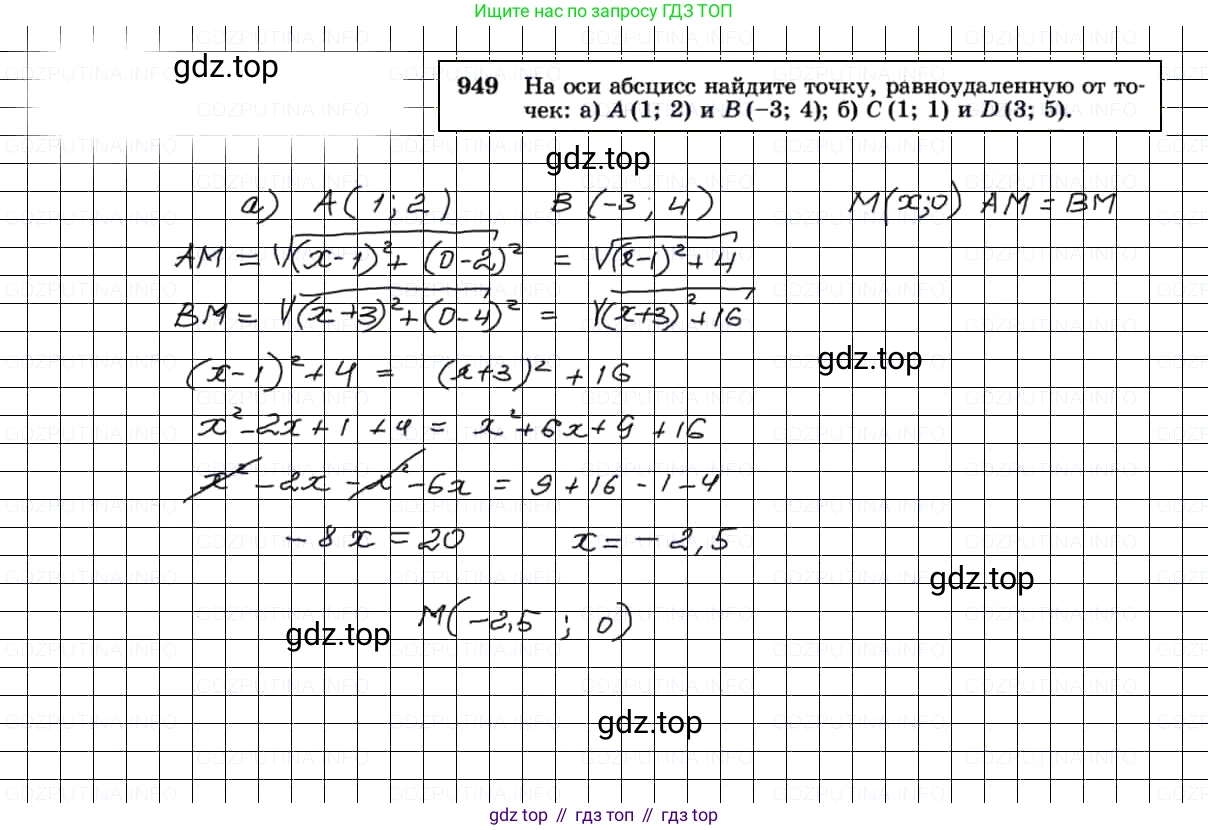 Ищите нас по запросу ГДЗ ТОП
gdz.top
949 На оси абсцисс найдите точку, равноудаленную от то-
чек: а) A (1; 2) и B (−3; 4); б) C (1; 1) и D (3; 5).
gdz.top
а) A(1;2) B(-3;4) M(x;0) AM=BM
AM = √(x-1)²+(0-2)² = √(x-1)²+4
BM = √(x+3)²+(0-4)² = √(x+3)²+16
(x-1)²+4 = (x+3)²+16
gdz.top
x²-2x+1+4 = x²+6x+9+16
x²-2x-x²-6x = 9+16-1-4
-8x=20 x=-2,5
gdz.top
M(-2,5; 0)
gdz.top
gdz.top
gdz top // гдз топ // гдз top
GDZPUTINA.INFO